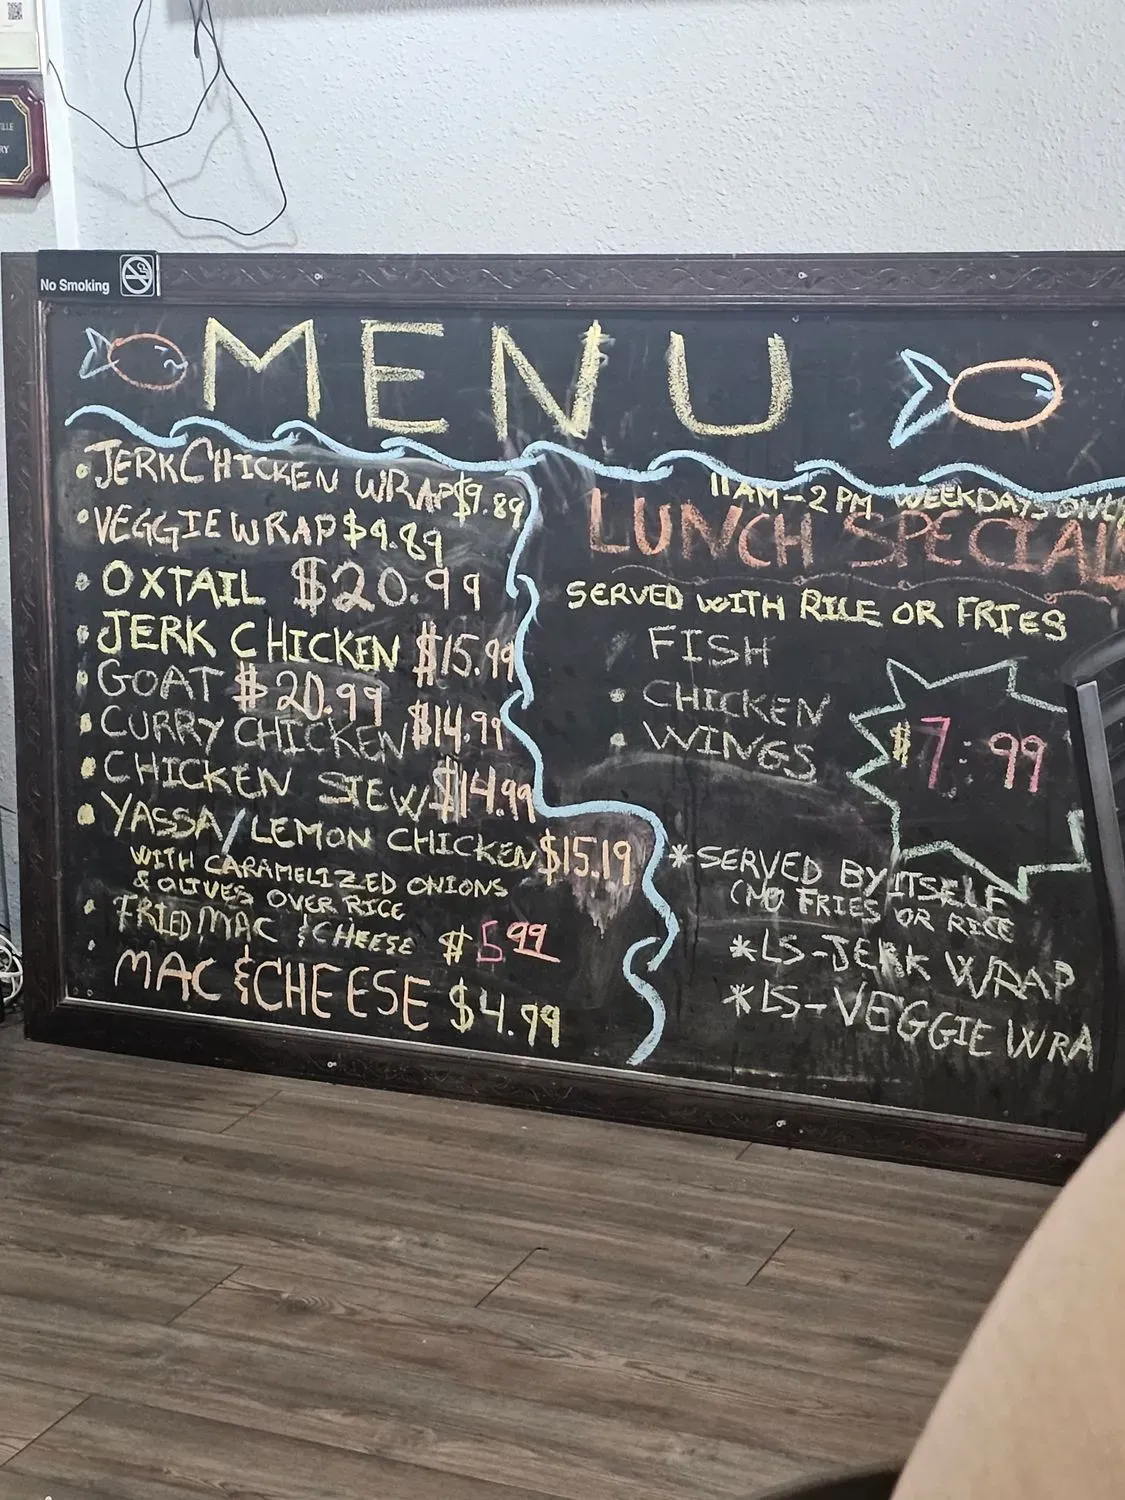 LLE
RY
No Smoking
MENU
JERK CHICKEN WRAP $9.89
VEGGIE WRAP $9.89
OXTAIL $20.99
JERK CHICKEN $15.99
GOAT $20.99
CURRY CHICKEN $14.99
CHICKEN STEW $14.99
YASSA/LEMON CHICKEN $15.19
WITH CARAMELIZED ONIONS
& OLIVES OVER RICE
FRIED MAC & CHEESE $5.99
MAC & CHEESE $4.99
11AM-2PM WEEKDAYS ONLY
LUNCH SPECIAL
SERVED WITH RICE OR FRIES
FISH
CHICKEN
WINGS
$7.99
*SERVED BY ITSELF
(NO FRIES OR RICE
*LS-JERK WRAP
*LS-VEGGIE WRA